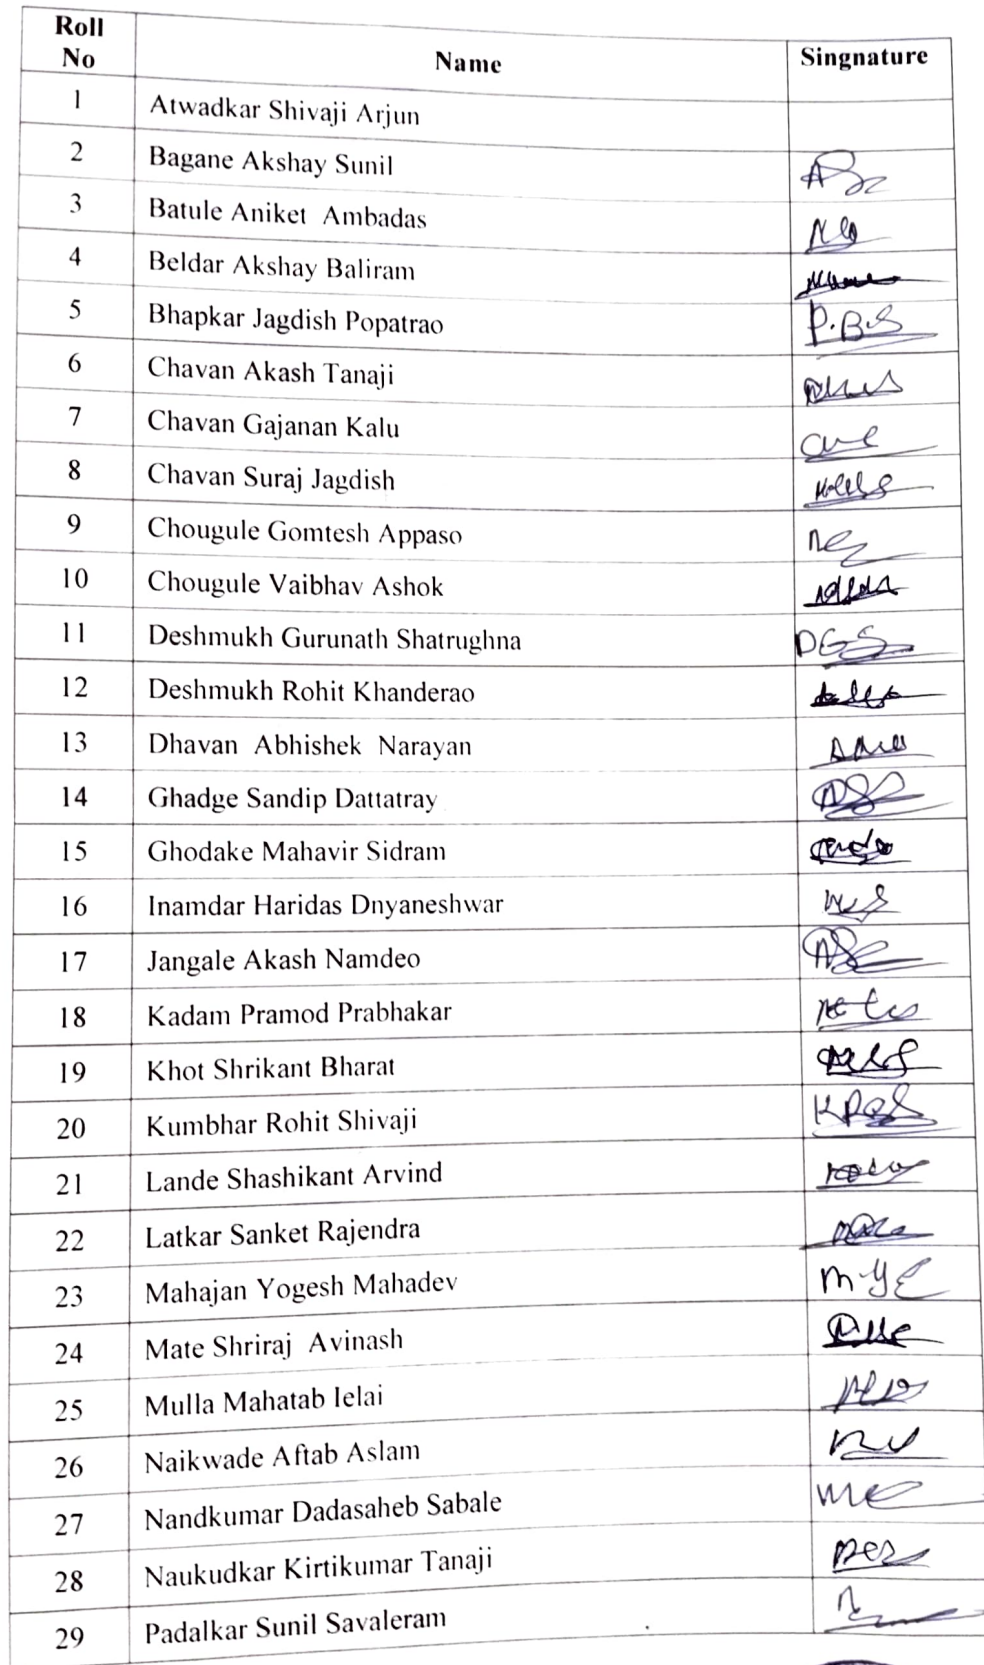 Roll No Name Singnature
1 Atwadkar Shivaji Arjun
2 Bagane Akshay Sunil
3 Batule Aniket Ambadas
4 Beldar Akshay Baliram
5 Bhapkar Jagdish Popatrao P.B.S
6 Chavan Akash Tanaji
7 Chavan Gajanan Kalu
8 Chavan Suraj Jagdish
9 Chougule Gomtesh Appaso
10 Chougule Vaibhav Ashok
11 Deshmukh Gurunath Shatrughna DGS
12 Deshmukh Rohit Khanderao
13 Dhavan Abhishek Narayan
14 Ghadge Sandip Dattatray
15 Ghodake Mahavir Sidram
16 Inamdar Haridas Dnyaneshwar
17 Jangale Akash Namdeo
18 Kadam Pramod Prabhakar
19 Khot Shrikant Bharat
20 Kumbhar Rohit Shivaji
21 Lande Shashikant Arvind
22 Latkar Sanket Rajendra
23 Mahajan Yogesh Mahadev
24 Mate Shriraj Avinash
25 Mulla Mahatab Ielai
26 Naikwade Aftab Aslam
27 Nandkumar Dadasaheb Sabale
28 Naukudkar Kirtikumar Tanaji
29 Padalkar Sunil Savaleram